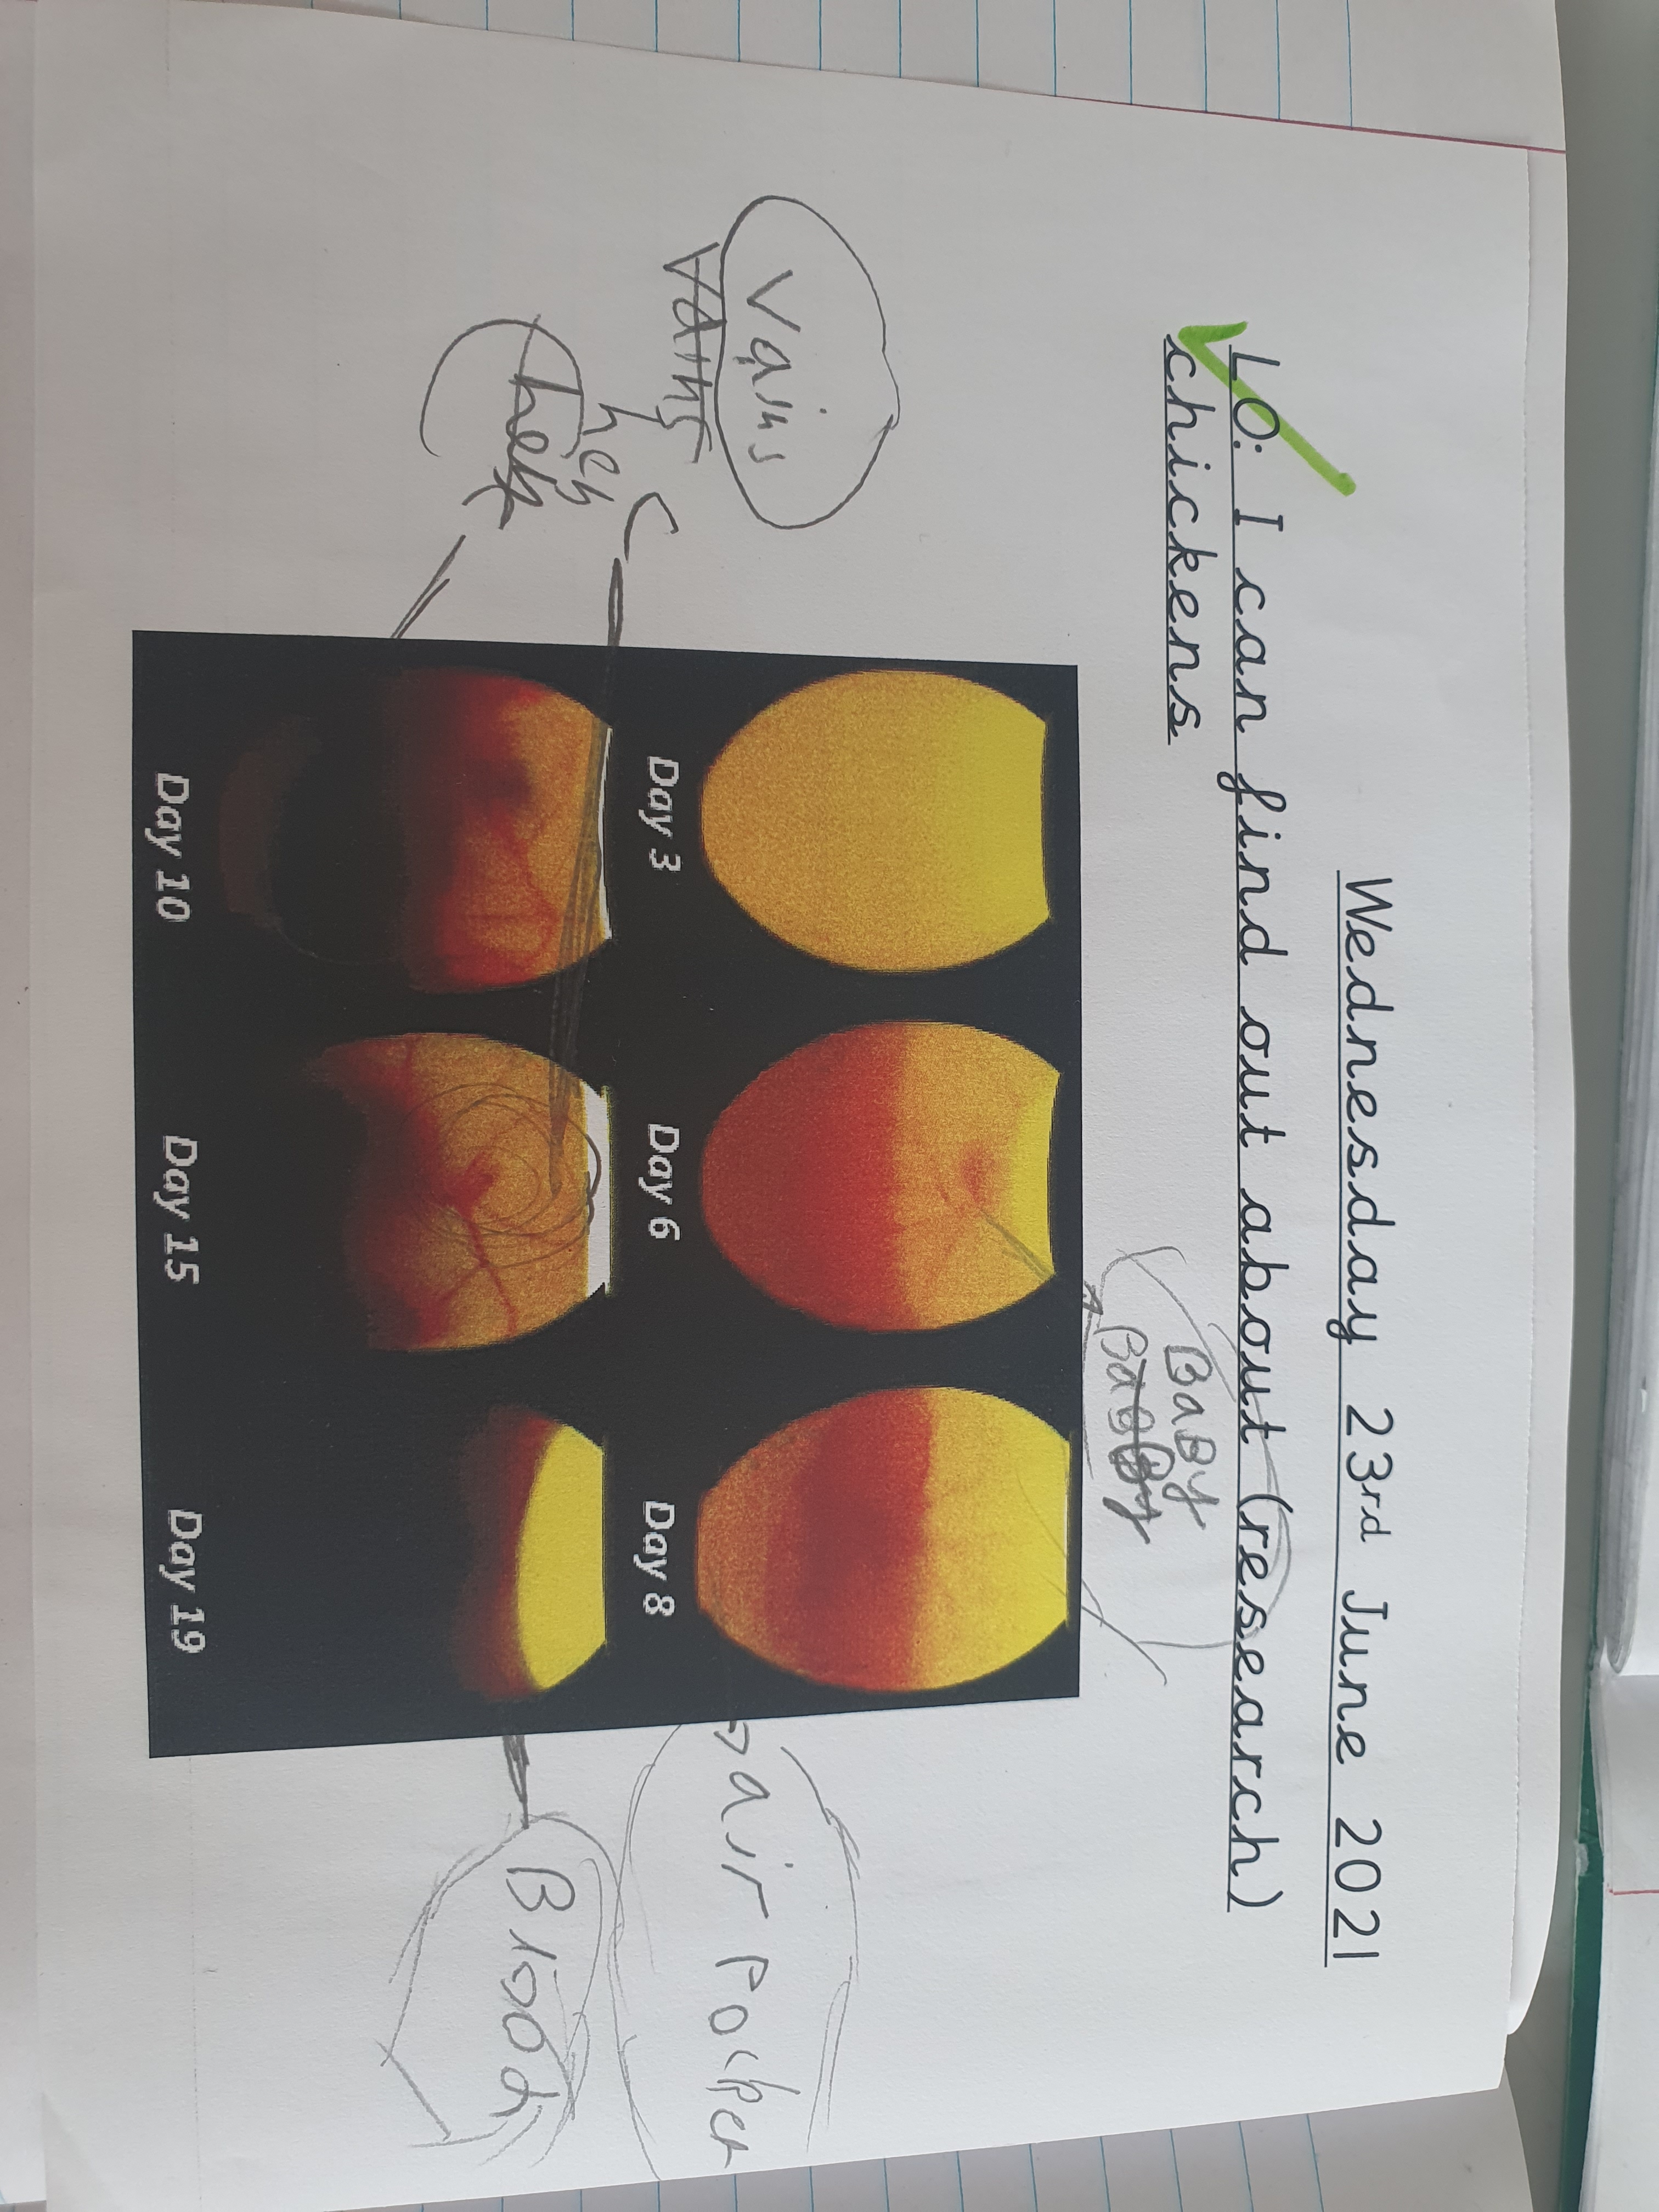 Wednesday 23rd June 2021
LO: I can find out about (research)
chickens
BaBy
Vains
Vains
air Pocket
Day 3 Day 6 Day 8
Blood
Day 10 Day 15 Day 19